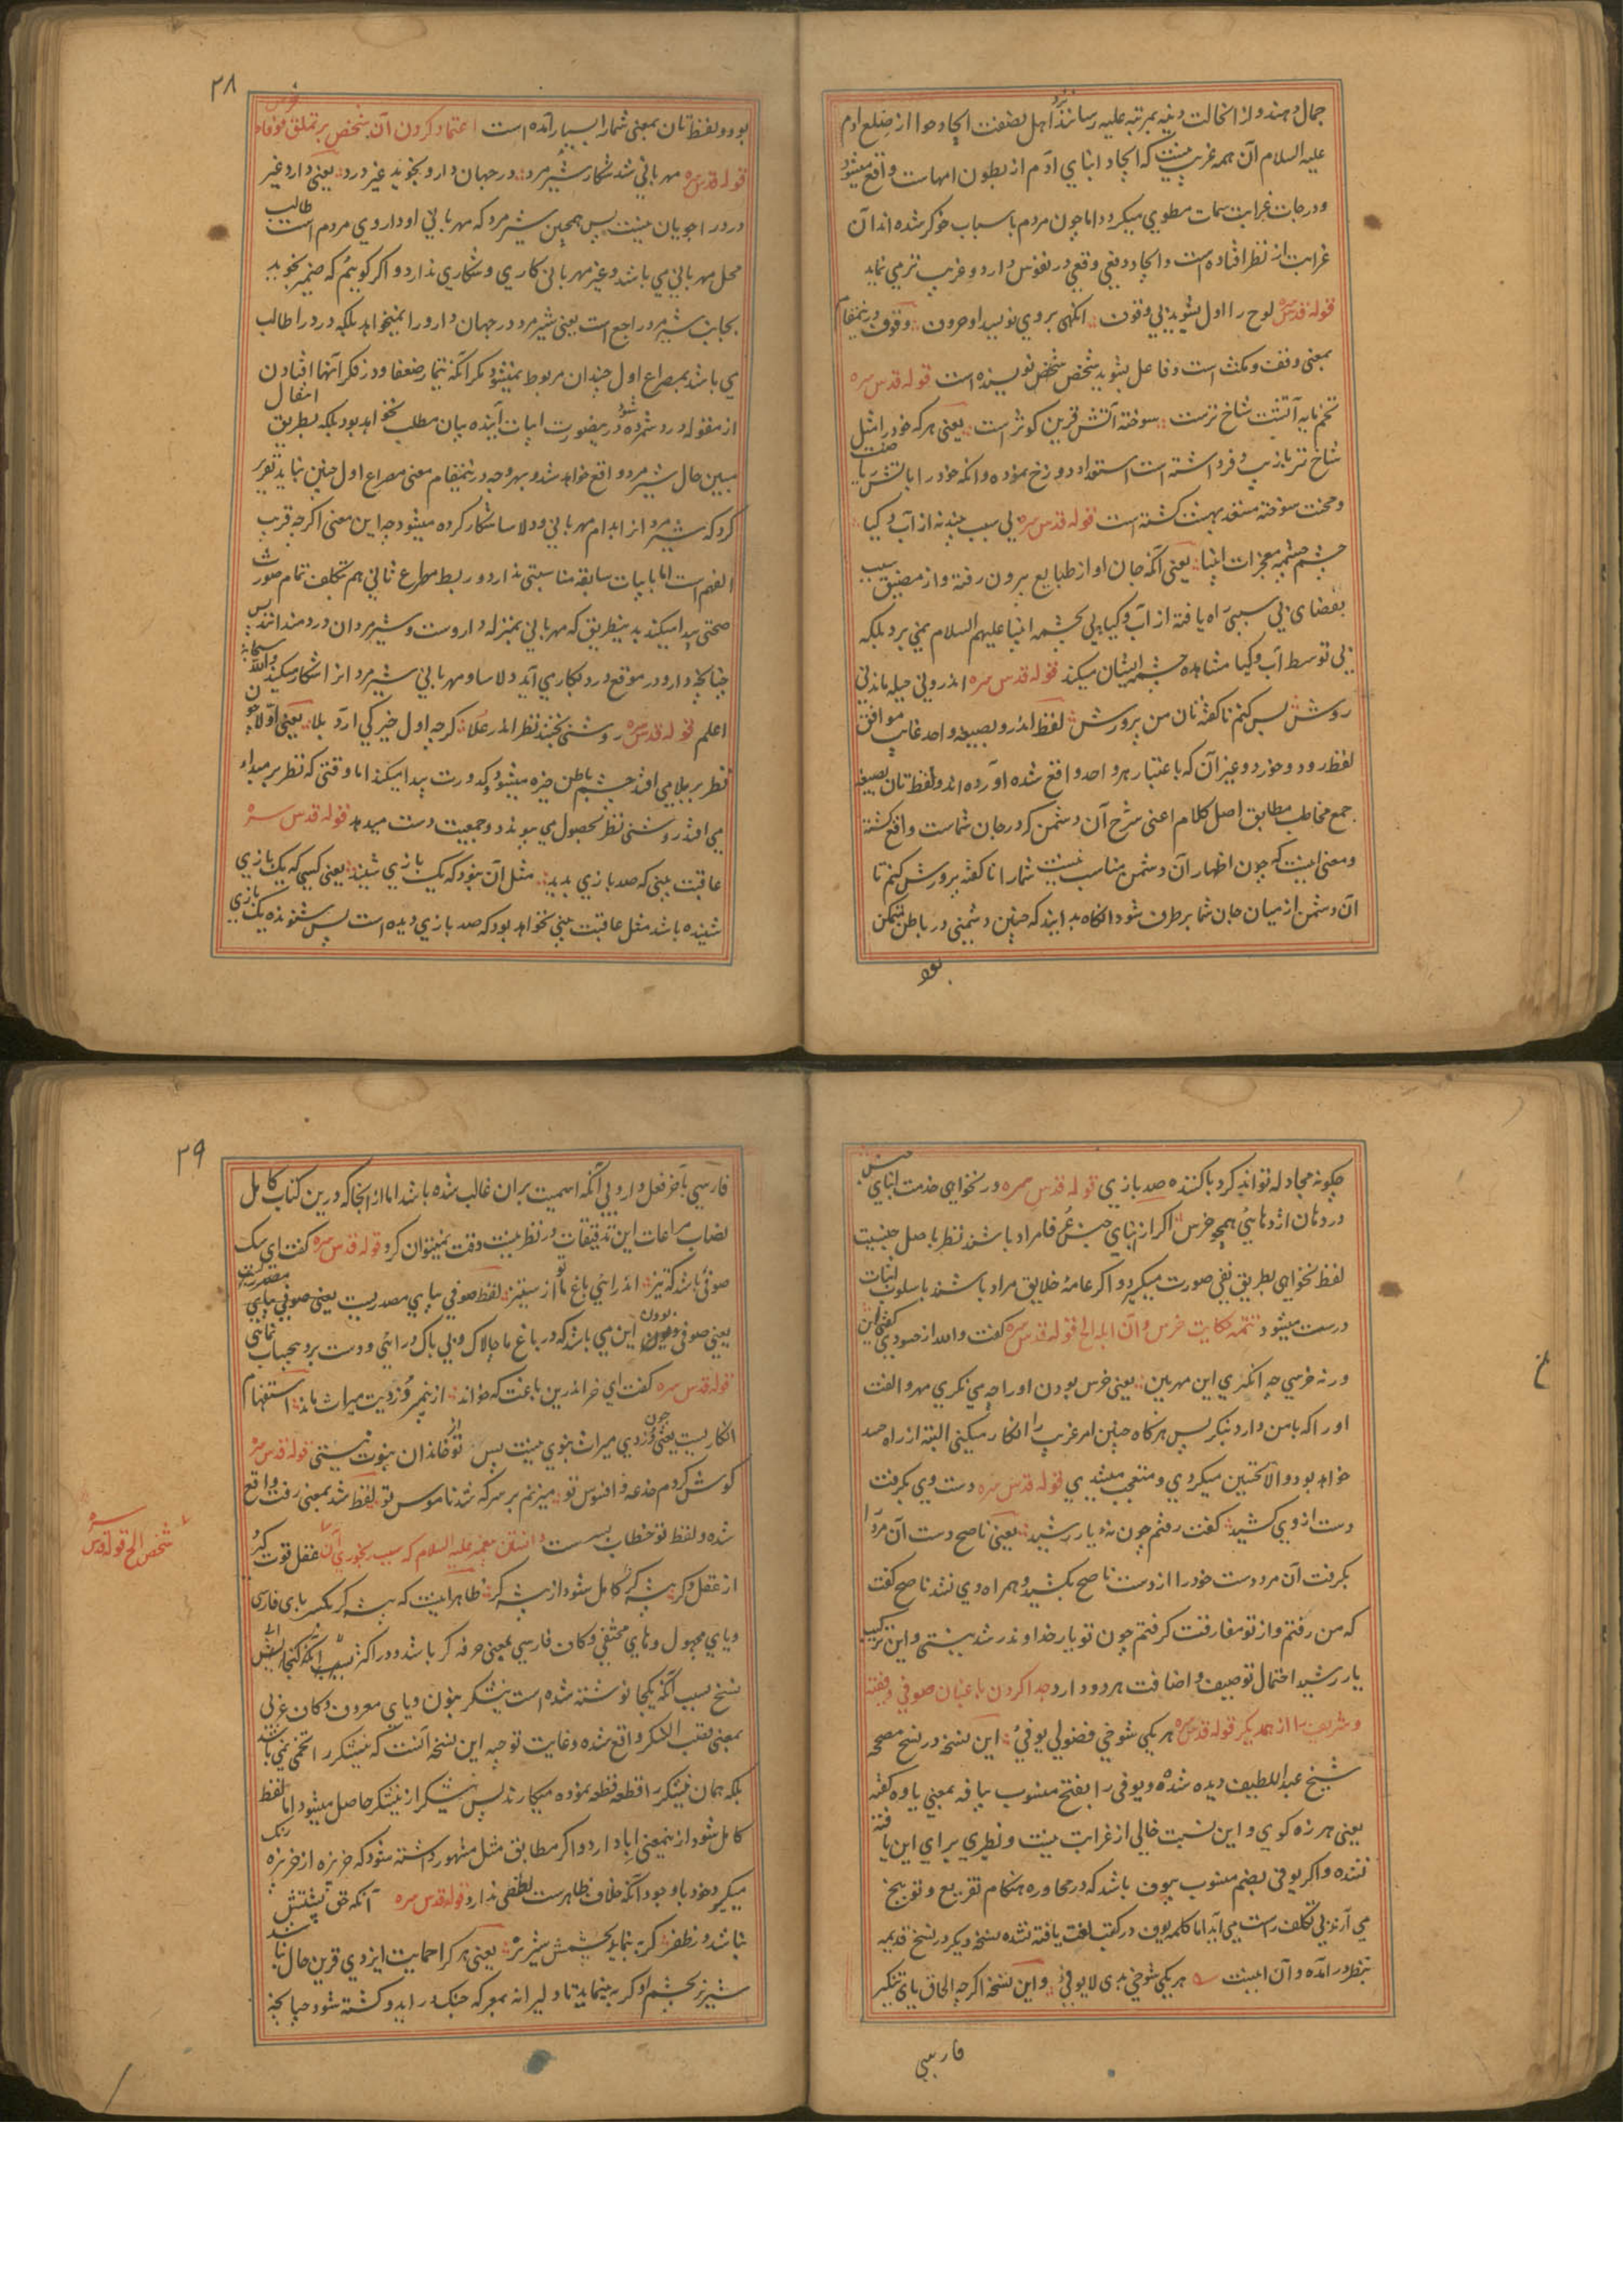 جمال دهند و از انحالت دنیه بمرتبه علیه رسانند نزد اهل بضعت ایجاد حوا از ضلع ادم
علیه السلام آن همه غریب نیست که ایجاد ابنای آدم از بطون امهات واقع میشود
و درجات غرابت سمات مطوی میگردد اما چون مردم باسباب خوگر شده اند آن
غرابت از نظر افتاده است و ایجاد دفعی وقعی در نفوس دارد و غریب تر می نماید
قوله قدس سره لوح را اول بشوید بی وقوف انگهی بروی نویسد او حروف وقوف درینمقام
بمعنی وقف و مکث است و فاعل بشوید شخص نویسنده است قوله قدس سره
تخم مایه آتشت شاخ ترست سوخته آتش قرین کوثر است یعنی هر که خود را مثل
شاخ تر بازیب و فر داشته است استعداد دوزخ نموده و انکه خود را بآتش ریاضت
و محنت سوخته مستعد بهشت گشته است قوله قدس سره بی سبب بیند نه از آب و گیا
چشم چشمه معجزات انبیا یعنی آنکه جان او از طبایع برون رفته و از مضیق سبب
بفضای بی سببی راه یافته از آب و گیا پی بچشمه انبیا علیهم السلام نمی برد بلکه
بی توسط آب و گیا مشاهده چشمه ایشان میکند قوله قدس سره اندرونی حیله ماندنی
روش پس کنم ناگفته تان من پرورش لفظ اندرو بصیغه واحد غایب موافق
لفظ رود و خورد و غیر آن که باعتبار هر واحد واقع شده آورده اند و لفظ تان بصیغه
جمع مخاطب مطابق اصل کلام اعنی شرح آن دشمن که در جان شماست واقع گشته
و معنی اینست که چون اظهار آن دشمن مناسب نیست شما را ناگفته پرورش کنم تا
آن دشمن از میان جان شما برطرف شود انگاه بدانید که چنین دشمنی در باطن متمکن
بود
۳۸
بود و لفظ تان بمعنی شما را بسیار آمده است اعتماد کردن آن شخص بر تملق و وفاء خرس
قوله قدس سره مهربانی شد شکار شیر مرد در جهان دارو نجوید غیر درد یعنی دارو غیر
درد را جویان نیست پس همچنین شیر مرد که مهربانی او داروی مردم است طالب
محل مهربانی می باشد و غیر مهربانی کاری و شکاری ندارد و اگر گوییم که ضمیر نجوید
بجانب شیر مرد راجع است یعنی شیر مرد در جهان دارو را نمیخواهد بلکه درد را طالب
می باشد بمصراع اول چندان مربوط نمیشود مگر آنکه تیمار ضعفا و در فکر آنها افتادن
از مقوله درد شمرده شود درینصورت ابیات آینده بیان مطلب نخواهد بود بلکه بطریق انتقال
مبین حال شیر مرد واقع خواهد شد و بهر وجه درینمقام معنی مصراع اول چنین نباید تقریر
کرد که شیر مرد از ابدام مهربانی و دلاسا شکار کرده میشود چه این معنی اگرچه قریب
الفهم است اما بابیات سابقه مناسبتی ندارد و ربط مصرع ثانی هم بتکلف تمام صورت
صحتی پیدا میکند بدینطریق که مهربانی بمنزله داروست و شیر مردان دردمند اند پس
چنانچه دارو در موقع درد بکار می آید دلاسا و مهربانی شیر مرد از اشکار میکند والله سبحانه
اعلم قوله قدس سره روشنی بخشد نظر اندر علا گرچه اول خیرگی آرد بلا یعنی اولا چون
نظر بر بلا می افتد چشم باطن خیره میشود و کدورت پیدا میکند اما وقتی که نظر بر مبداء
می افتد روشنی نظر بحصول می پیوندد و جمعیت دست میدهد قوله قدس سره
عاقبت بینی که صد بازی بدید مثل آن نبود که یک بازی شنید یعنی کسی که یک بازی
شنیده باشد مثل عاقبت بینی نخواهد بود که صد بازی دیده است پس شنونده یک بازی
چگونه مجادله تواند کرد با کننده صد بازی قوله قدس سره ور نخواهی خدمت ابنای جنس
در دهان اژدهایی همچو خرس اگر از ابنای جنس عرفا مراد باشند نظر باصل جنسیت
لفظ نخواهی بطریق نفی صورت میگیرد و اگر عامه خلایق مراد باشند باسلوب اثبات
درست میشود تتمه حکایت خرس و آن ابله الخ قوله قدس سره گفت والله از حسودی گفتی این
ورنه خرسی چه انگری این مهر بین یعنی خرس بودن او را چه می نگری مهر و الفت
او را که با من دارد بنگر پس هرگاه چنین امر غریب را انکار میکنی البته از راه حسد
خواهد بود و الا تحسین میکردی و متعجب میشدی قوله قدس سره دست وی بگرفت
دست از وی کشید گفت رفتم چون نه یار رشید یعنی ناصح دست آن مرد را
بگرفت آن مرد دست خود را از دست ناصح بکشید و همراه وی نشد ناصح گفت
که من رفتم و از تو مفارقت گرفتم چون تو یار خداوند رشد نیستی و این ترکیب
یار رشید احتمال توصیف و اضافت هر دو دارد جدا کردن باغبان صوفی و فقیه
و شریف را از همدیگر قوله قدس سره هر یکی شوخی فضولی یوفیی این نسخه در نسخ مصححه
شیخ عبد اللطیف دیده شده و یوفی را بفتح منسوب بیافه بمعنی یاوه گفته
یعنی هرزه گوی و این نسبت خالی از غرابت نیست و نظیری برای این یافته
نشده و اگر یوفی بضم منسوب بیوف باشد که در محاوره هنگام تقریع و توبیخ
می آرند بی تکلف راست می آید اما کلمه یوف در کتب لغت یافته نشده نسخه دیگر در نسخ قدیمه
بنظر درآمده و آن اینست هر یکی شوخی بدی لایوفیی و این نسخه اگرچه الحاق یای تنکیر
فارسی
۳۹
فارسی بآخر فعل وارد بی آنکه اسمیت بر آن غالب شده باشد اما از انجا که درین کتاب کامل
نصاب مراعات این تدقیقات در نظر نیست دقت نمیتوان کرد قوله قدس سره گفت ای سگ
صوفیی باشد که تیز اندر آیی باغ ما تو از ستیز لفظ صوفیی بیای مصدریست یعنی صوفی بیای مصدریست
یعنی صوفی بودن این می باشد که در باغ ما چالاک و بی باک درآیی و دست برد بیحساب نمایی
قوله قدس سره گفت ای خر اندرین باغت که خواند دزدی از پیغمبرت میراث ماند استفهام
انکاریست یعنی چون دزدی میراث نبوی نیست پس تو از خاندان نبوت نیستی قوله قدس سره
گوش کردم خدعه و افسوس تو میزنم بر سر که شد ناموس تو لفظ شد بمعنی رفت واقع
شده و لفظ تو خطاب بسر است دانستن پیغمبر علیه السلام که سبب رنجوری آن شخص الخ قوله قدس سره عقل قوت گیرد
از عقل دگر پیشه گر کامل شود از پیشه گر ظاهر اینست که پیشه گر بکسر بای فارسی
و یای مجهول و های مختفی و کاف فارسی بمعنی حرفه گر باشد و در اکثر
نسخ بسبب آنکه یکجا نوشته شده است نیشکر بنون و یای معروف و کاف عربی
بمعنی قصب السکر واقع شده و غایت توجیه این نسخه آنست که نیشکر را تخمی نمی باشد
بلکه همان نیشکر را قطعه قطعه نموده میکارند پس نیشکر از نیشکر حاصل میشود اما لفظ
کامل شود ازینمعنی ابا دارد و اگر مطابق مثل مشهور داشته شود که خربزه از خربزه رنگ
میگیرد خود با وجود آنکه خلاف ظاهرست لطفی ندارد قوله قدس سره آنکه حق پشتش
نباشد در ظفر گربه نماید بچشمش شیر نر یعنی هر کرا حمایت ایزدی قرین حال نباشد
شیر نر بچشم او گربه مینماید تا دلیرانه بمعرکه جنگ درآید و کشته شود چنانچه